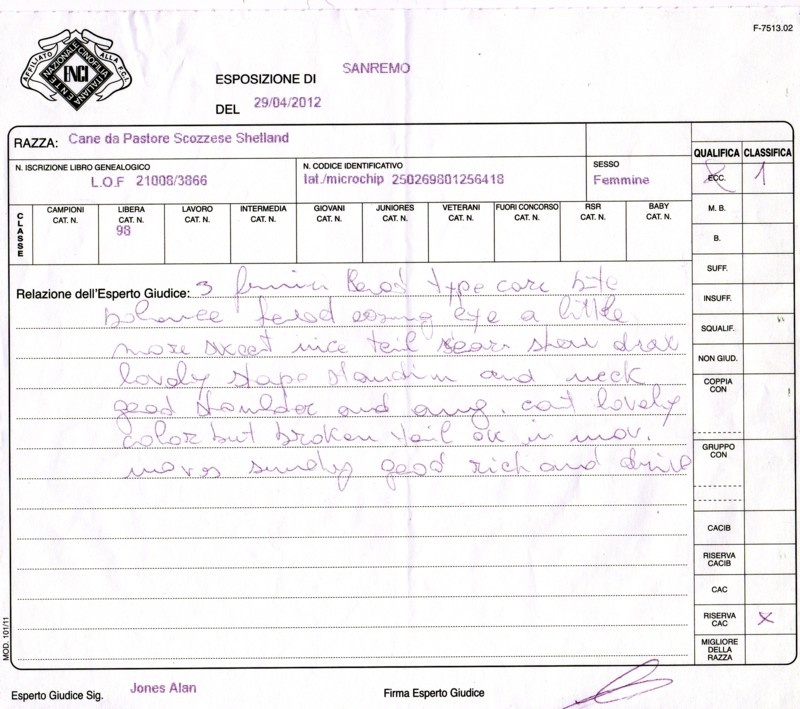 F-7513.02
AFFILIATO ALLA F.C.I.
ENTE NAZIONALE CINOFILIA ITALIANA
ENCI
ESPOSIZIONE DI SANREMO
DEL 29/04/2012
RAZZA: Cane da Pastore Scozzese Shetland
QUALIFICA CLASSIFICA
N. ISCRIZIONE LIBRO GENEALOGICO N. CODICE IDENTIFICATIVO SESSO
L.O.F 21008/3866 tat./microchip 250269801256418 Femmine
ECC. 1
CLASSE
CAMPIONI CAT. N.
LIBERA CAT. N. 98
LAVORO CAT. N.
INTERMEDIA CAT. N.
GIOVANI CAT. N.
JUNIORES CAT. N.
VETERANI CAT. N.
FUORI CONCORSO CAT. N.
RSR CAT. N.
BABY CAT. N.
M. B.
B.
SUFF.
INSUFF.
SQUALIF.
NON GIUD.
COPPIA CON
GRUPPO CON
CACIB
RISERVA CACIB
CAC
RISERVA CAC X
MIGLIORE DELLA RAZZA
Relazione dell'Esperto Giudice: 3 type bite
eye a little
more nice teil
lovely and neck
good shoulder and lovely
color but broken tail ok in mov.
good rich and
MOD. 101/11
Esperto Giudice Sig. Jones Alan
Firma Esperto Giudice